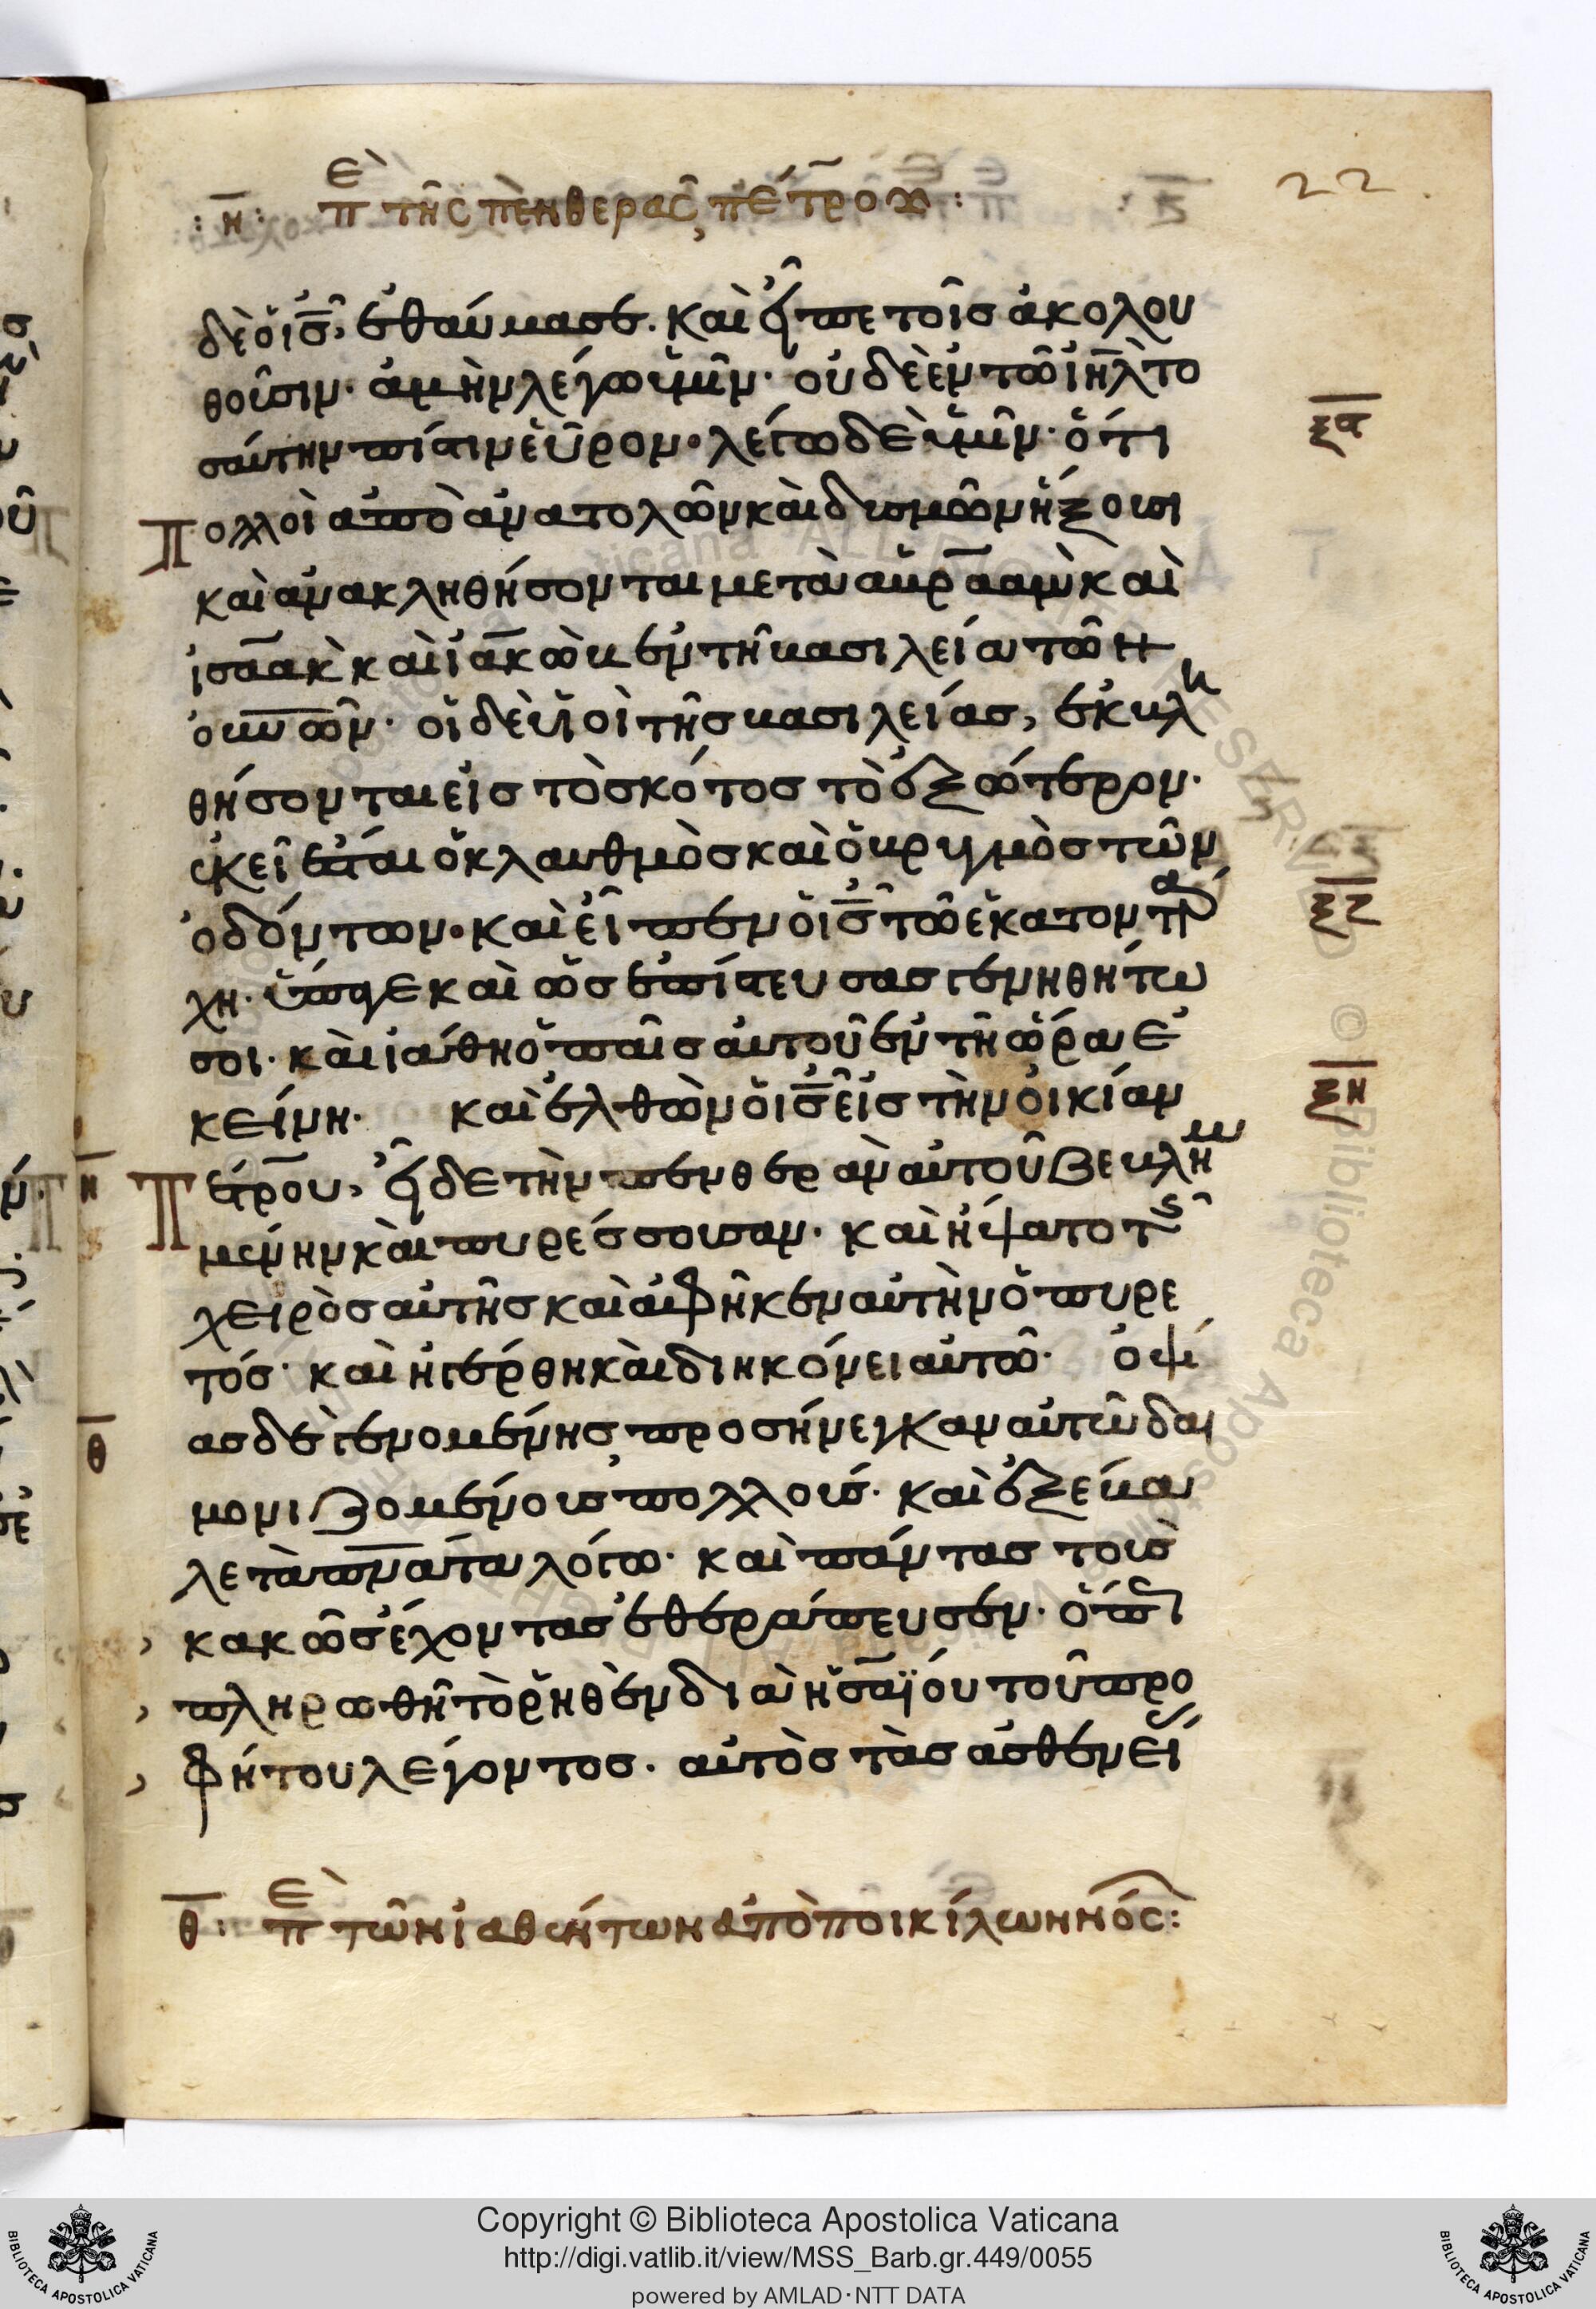 22
: η̄ : πὲ τῆς πενθερᾶς πέτρου :
δὲ ὁ ις̄, ἐθαύμασε. καὶ εἶπε τοῖς ἀκολου
θοῦσιν· ἀμὴν λέγω ὑμῖν· οὐδὲ ἐν τῶ ιη̄λ το
ξᾱ
σαύτην πίστιν εὗρον· λέγω δὲ ὑμῖν· ὅτι
Πολλοὶ ἀπὸ ἀνατολῶν καὶ δυσμῶν ἥξουσι
καὶ ἀνακληθήσονται μετὰ ἀβρααμ καὶ
ἰσαὰκ καὶ ἰακὼβ ἐν τῆ βασιλεία τῶν
οὐνῶν· οἱ δὲ υἱοὶ τῆς βασιλείας, ἐκβλη
θήσονται εἰς τὸ σκότος τὸ ἐξώτερον·
ἐκεῖ ἔσται ὁ κλαυθμὸς καὶ ὁ βρυγμὸς τῶν
ὀδόντων· καὶ εἶπεν ὁ ις̄ τῶ ἑκατοντάρ
ξζ̄
χη· ὕπαγε καὶ ὡς ἐπίστευσας γενηθήτω
σοι· καὶ ἰάθη ὁ παῖς αὐτοῦ ἐν τῆ ὥρα ἐ
κείνη· καὶ ἐλθὼν ὁ ις̄ εἰς τὴν οἰκίαν
ξη̄
η̄ Πέτρου, εἶδε τὴν πενθερὰν αὐτοῦ βεβλημ
μένην καὶ πυρέσσουσαν· καὶ ἥψατο τῆς
χειρὸς αὐτῆς καὶ ἀφῆκεν αὐτὴν ὁ πυρε
τός· καὶ ἠγέρθη καὶ διηκόνει αὐτῶ· ὀψί
θ̄ ας δὲ γενομένης προσήνεγκαν αὐτῶ δαι
μονιζομένους πολλούς· καὶ ἐξέβα
λε τὰ πνᾱτα λόγω· καὶ πάντας τοὺς
κακῶς ἔχοντας ἐθεράπευσεν· ὅπως
πληρωθῆ τὸ ῥηθὲν διὰ ἡσαΐου τοῦ προ
φήτου λέγοντος· αὐτὸς τὰς ἀσθενεί
θ̄ : πὲ τῶν ἰαθέντων ἀπὸ ποικίλων νόσ :
Copyright © Biblioteca Apostolica Vaticana
http://digi.vatlib.it/view/MSS_Barb.gr.449/0055
powered by AMLAD·NTT DATA
BIBLIOTECA APOSTOLICA VATICANA
BIBLIOTECA APOSTOLICA VATICANA